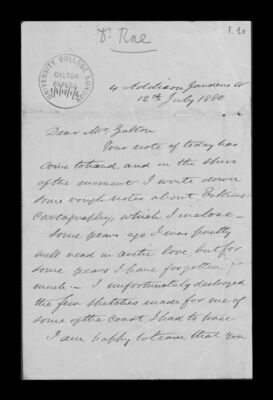 Dr Rae
f. 1r
UNIVERSITY COLLEGE LONDON
GALTON
PAPERS
4 Addison Gardens W
12th July 1880
Dear Mr. Galton
Your note of today has
come to hand, and on the spur
of the moment I write down
some rough notes about Eskimo
cartography, which I inclose.—
Some years ago I was pretty
well read in Arctic lore, but for
some years I have forgotten
much.— I unfortunately destroyed
the few sketches made for me of
some of the coast I had to trace
I am happy to learn that you